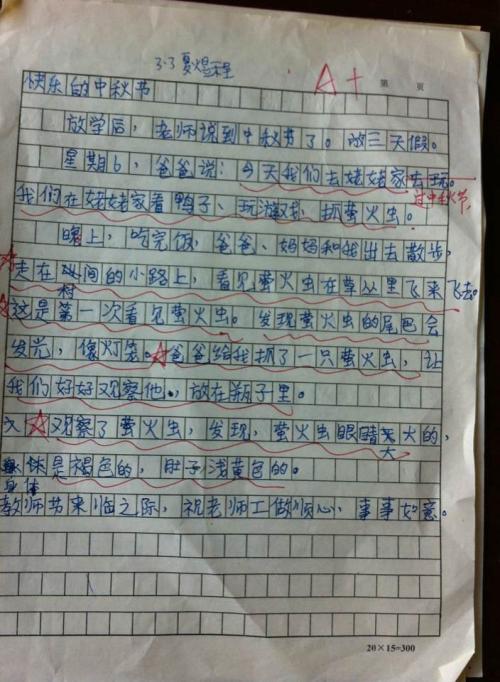 3.3 夏煜程
A+
第 页
快乐的中秋节
放学后,老师说到中秋节了。放三天假。
星期6,爸爸说:今天我们去姥姥家去玩。
过中秋节,
我们在姥姥家看鸭子、玩游戏、抓萤火虫。
晚上,吃完饭,爸爸、妈妈和我出去散步,
走在间的小路上,看见萤火虫在草丛里飞来飞去。
村
这是第一次看见萤火虫。发现萤火虫的尾巴会
发光,像灯笼。爸爸给我抓了一只萤火虫,让
我们好好观察他。,放在瓶子里。
观察了萤火虫,发现,萤火虫眼睛大的,
大
是褐色的,肚子浅黄色的。
身体
教师节来临之际,祝老师工做顺心,事事如意。
20×15=300